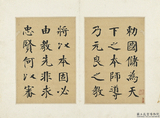 勅國儲為天
下之本師導
乃元良之教
將以本固必
由教先非求
忠賢何以審